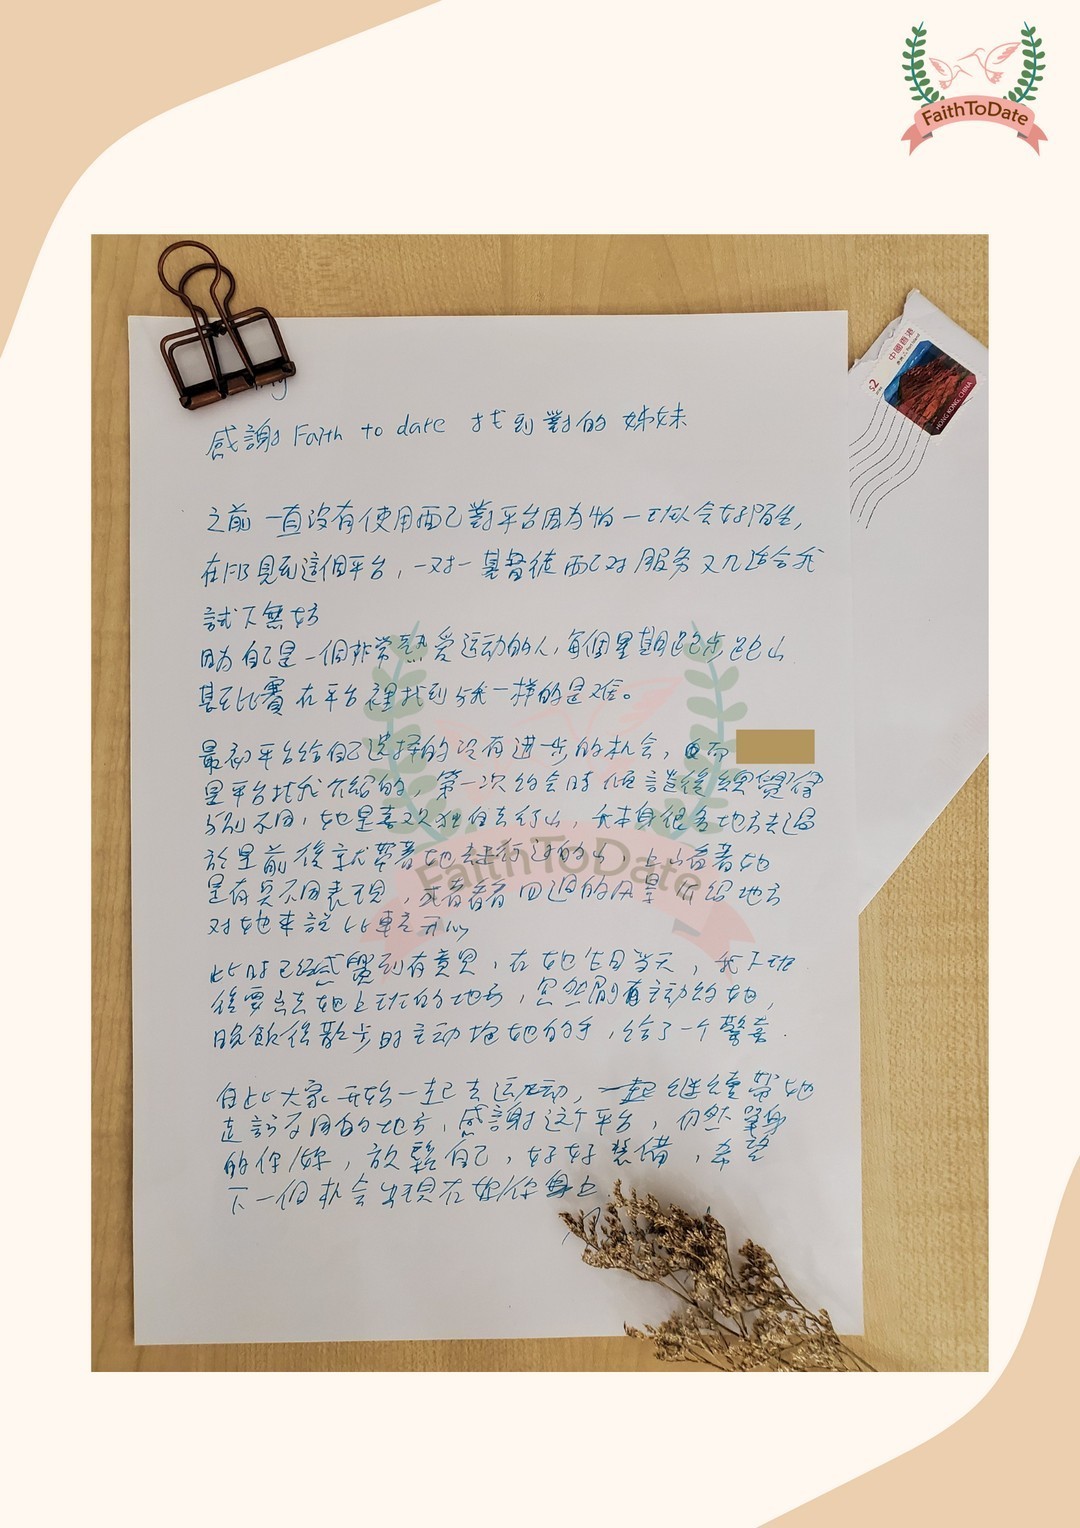 FaithToDate
中國香港
$2
HONG KONG, CHINA
感謝 Faith to date 找到對的姊妹
之前一直沒有使用配對平台因為怕一切以会好陌生,
在FB見到這個平台,一对一基督徒配对服务又几适合我
試下無妨
因為自己是一個非常熱爱运动的人,每個星期跑步跑山
甚至比賽 在平台裡找到与我一样的是难。
最初平台給自己选择的沒有进一步的机会,
是平台找我介紹的,第一次约会時傾談後總覺得
与别不同,她是喜欢独自去行山,我本身很多地方去過
於是前後就帶著她去行过的山,上山看著她
是有与不同表現,或者看看四週的风景介绍地方
对她來說比較开心
此时已经感覺到有意思,在她生日当天,我下班
後要去她上班的地方,忽然間主动约她,
晚飯後散步时主动拖她的手,给了一个驚喜.
自此大家开始一起去运动,一起继续帶她
走訪不同的地方,感謝这个平台,仍然單身
的你/妳,放鬆自己,好好裝備,希望
下一個机会出現在妳/你身上
FaithToDate